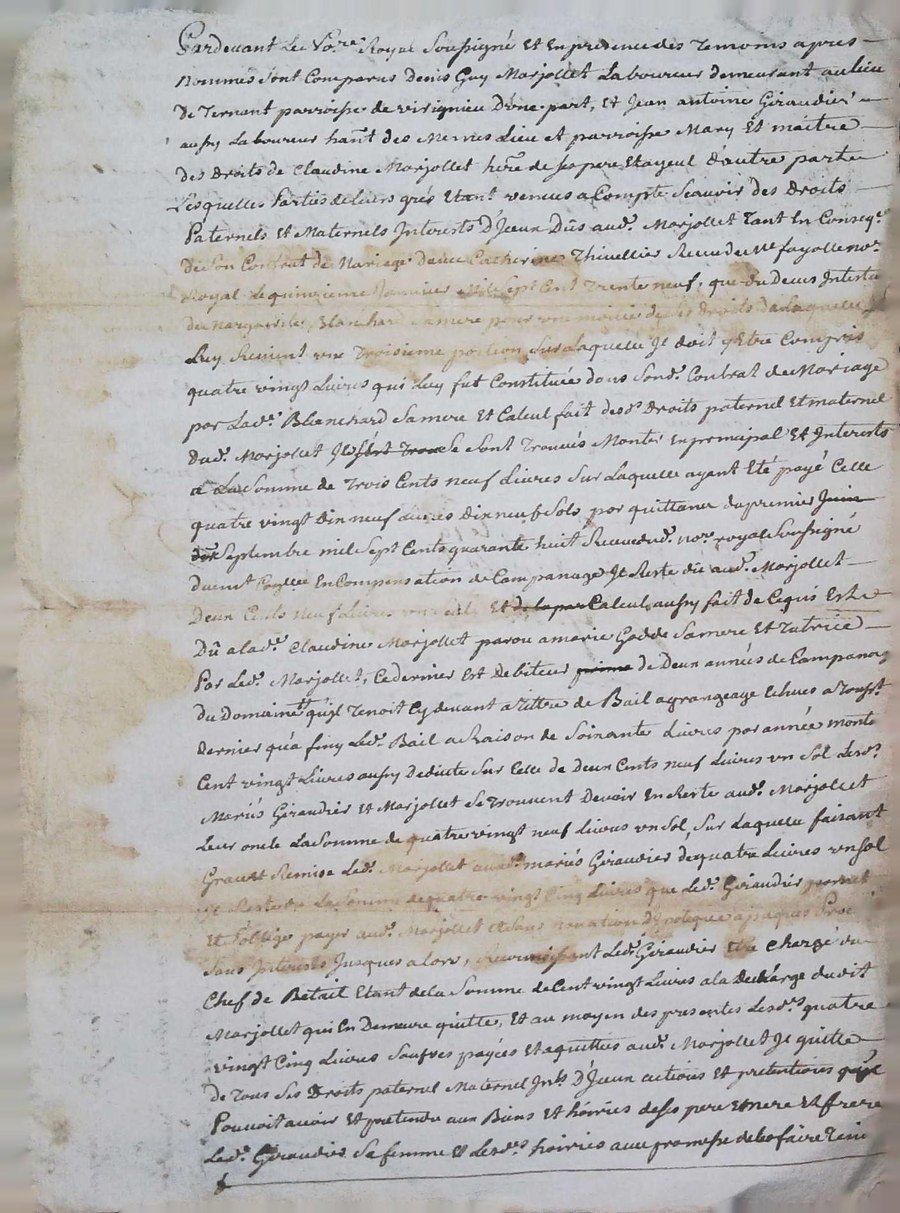 Pardevant Le No.re Royal Soussigné Et En presence des Temoins apres
Nommes sont Comparus Denis Guy Marjollet Laboureur demeurant au lieu
De Ternant parroisse de virignieu D'une part, Et Jean antoine Giraudier
aussy Laboureur hant des Memes Lieu et parroisse Mary Et maitre
des Droits de Claudine Marjollet here de ses pere Et ayeul d'autre parte
Lesquelles Parties de Leurs grés Etant venues a Compte Scauoir des Droits
Paternels Et Maternels Interests D'Jceux Dûs aud. Marjollet Tant En Conseq.
De Son Contrat de Mariage Catherine Thivellier Receu de Me fayolle no.r
Royal Le quinzieme Janvier Mil Sept Cent Trente neuf, que du Deces Intestat
de Marguerite Blanchard Sa mere pour une moitie de ses Droits de Laquelle
Luy Revient vne Troisieme portion Sur Laquelle Jl doit y Etre Compris
quatre vingt Livres qui Luy fut Constituée dans Sond. Contrat de Mariage
par Lad. Blanchard Sa mere Et Calcul fait desd. Droits paternel Et maternel
Dud. Marjollet Jls sont Trouve Se Sont Trouvés Monter En principal Et Interests
a La Somme de Trois Cents neuf Livres Sur Laquelle ayant Eté payé Celle
quatre vingt Dix neuf Livres Dix neuf Sols por quittance du premier Juin
Septembre mil Sept Cents quarante huit Receue no.r royal Soussigné
En Compensation de Campanage Jl Reste dü aud. Marjollet
Deux Cents neuf Livres vn Sol Et de la par Calcul aussy fait de Ce qui Est
Dû a lad. Claudine Marjollet par ou a marie Godde Sa mere Et Tutrice
Par Led. Marjollet, Ce dernier Est Debiteur de Deux années de Campanag
Du Domaine qu'jl Tenoit Cy devant a Tittre de Bail a grangeage Echues a Toust.
Dernier qu'a finy Led. Bail a Raison de Soixante Livres par année monte
Cent vingt Livres aussy Deduite Sur Celle de Deux Cents neuf Livres vn Sol Lesd.
Mariés Giraudier et Marjollet Se Trouvent Devoir En Reste aud. Marjollet
Leur oncle La Somme de quatre vingt neuf Livres vn Sol, Sur Laquelle faisant
Grace Et Remise Led. Marjollet auxd. mariés Giraudier de quatre Livres vn Sol
Jl Reste La Somme de quatre vingt Cinq Livres que Led. Giraudier promet
Et s'oblige payer aud. Marjollet et Sans novation D'ypoteque
Sans Interests Jusques a Lors, Led. Giraudier Chargé du
Chef de Betail Etant de la Somme de Cent vingt Livres a la decharge dudit
Marjollet qui En Demeure quitte, Et au moyen des presentes Lesd.s quatre
vingt Cinq Livres Saufves payées Et aquittées aud. Marjollet Jl quitte
De Tous Ses Droits paternel Maternel Jnts D'Jceux actions Et pretentions qu'jl
Pouvoit auoir Et pretendre aux Biens Et hoiries de Ses pere Et mere Et frere
Led. Giraudier Sa femme Et Lesd.s hoiries avec promesse de les faire Teni